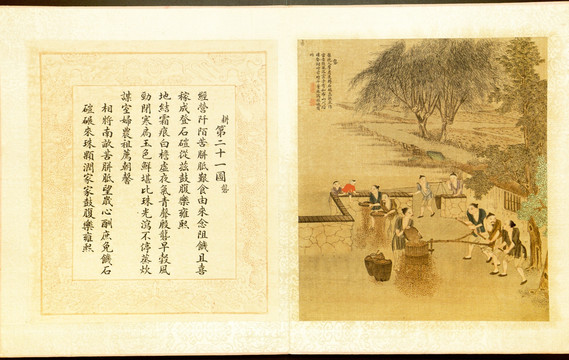 耕第二十一圖 礱
經營阡陌苦胼胝艱食由來念阻饑且喜
稼成登石磑從茲鼓腹樂雍熙
地結霜痕白檐虛夜氣青聲殷礱早穀風
動閉寒扃玉色鮮堪比珠光瀉不停蒸炊
謀室婦農祖薦朝馨
相將南畝苦胼胝望歲心酬庶免饑石
磑碾來珠顆潤家家鼓腹樂雍熙